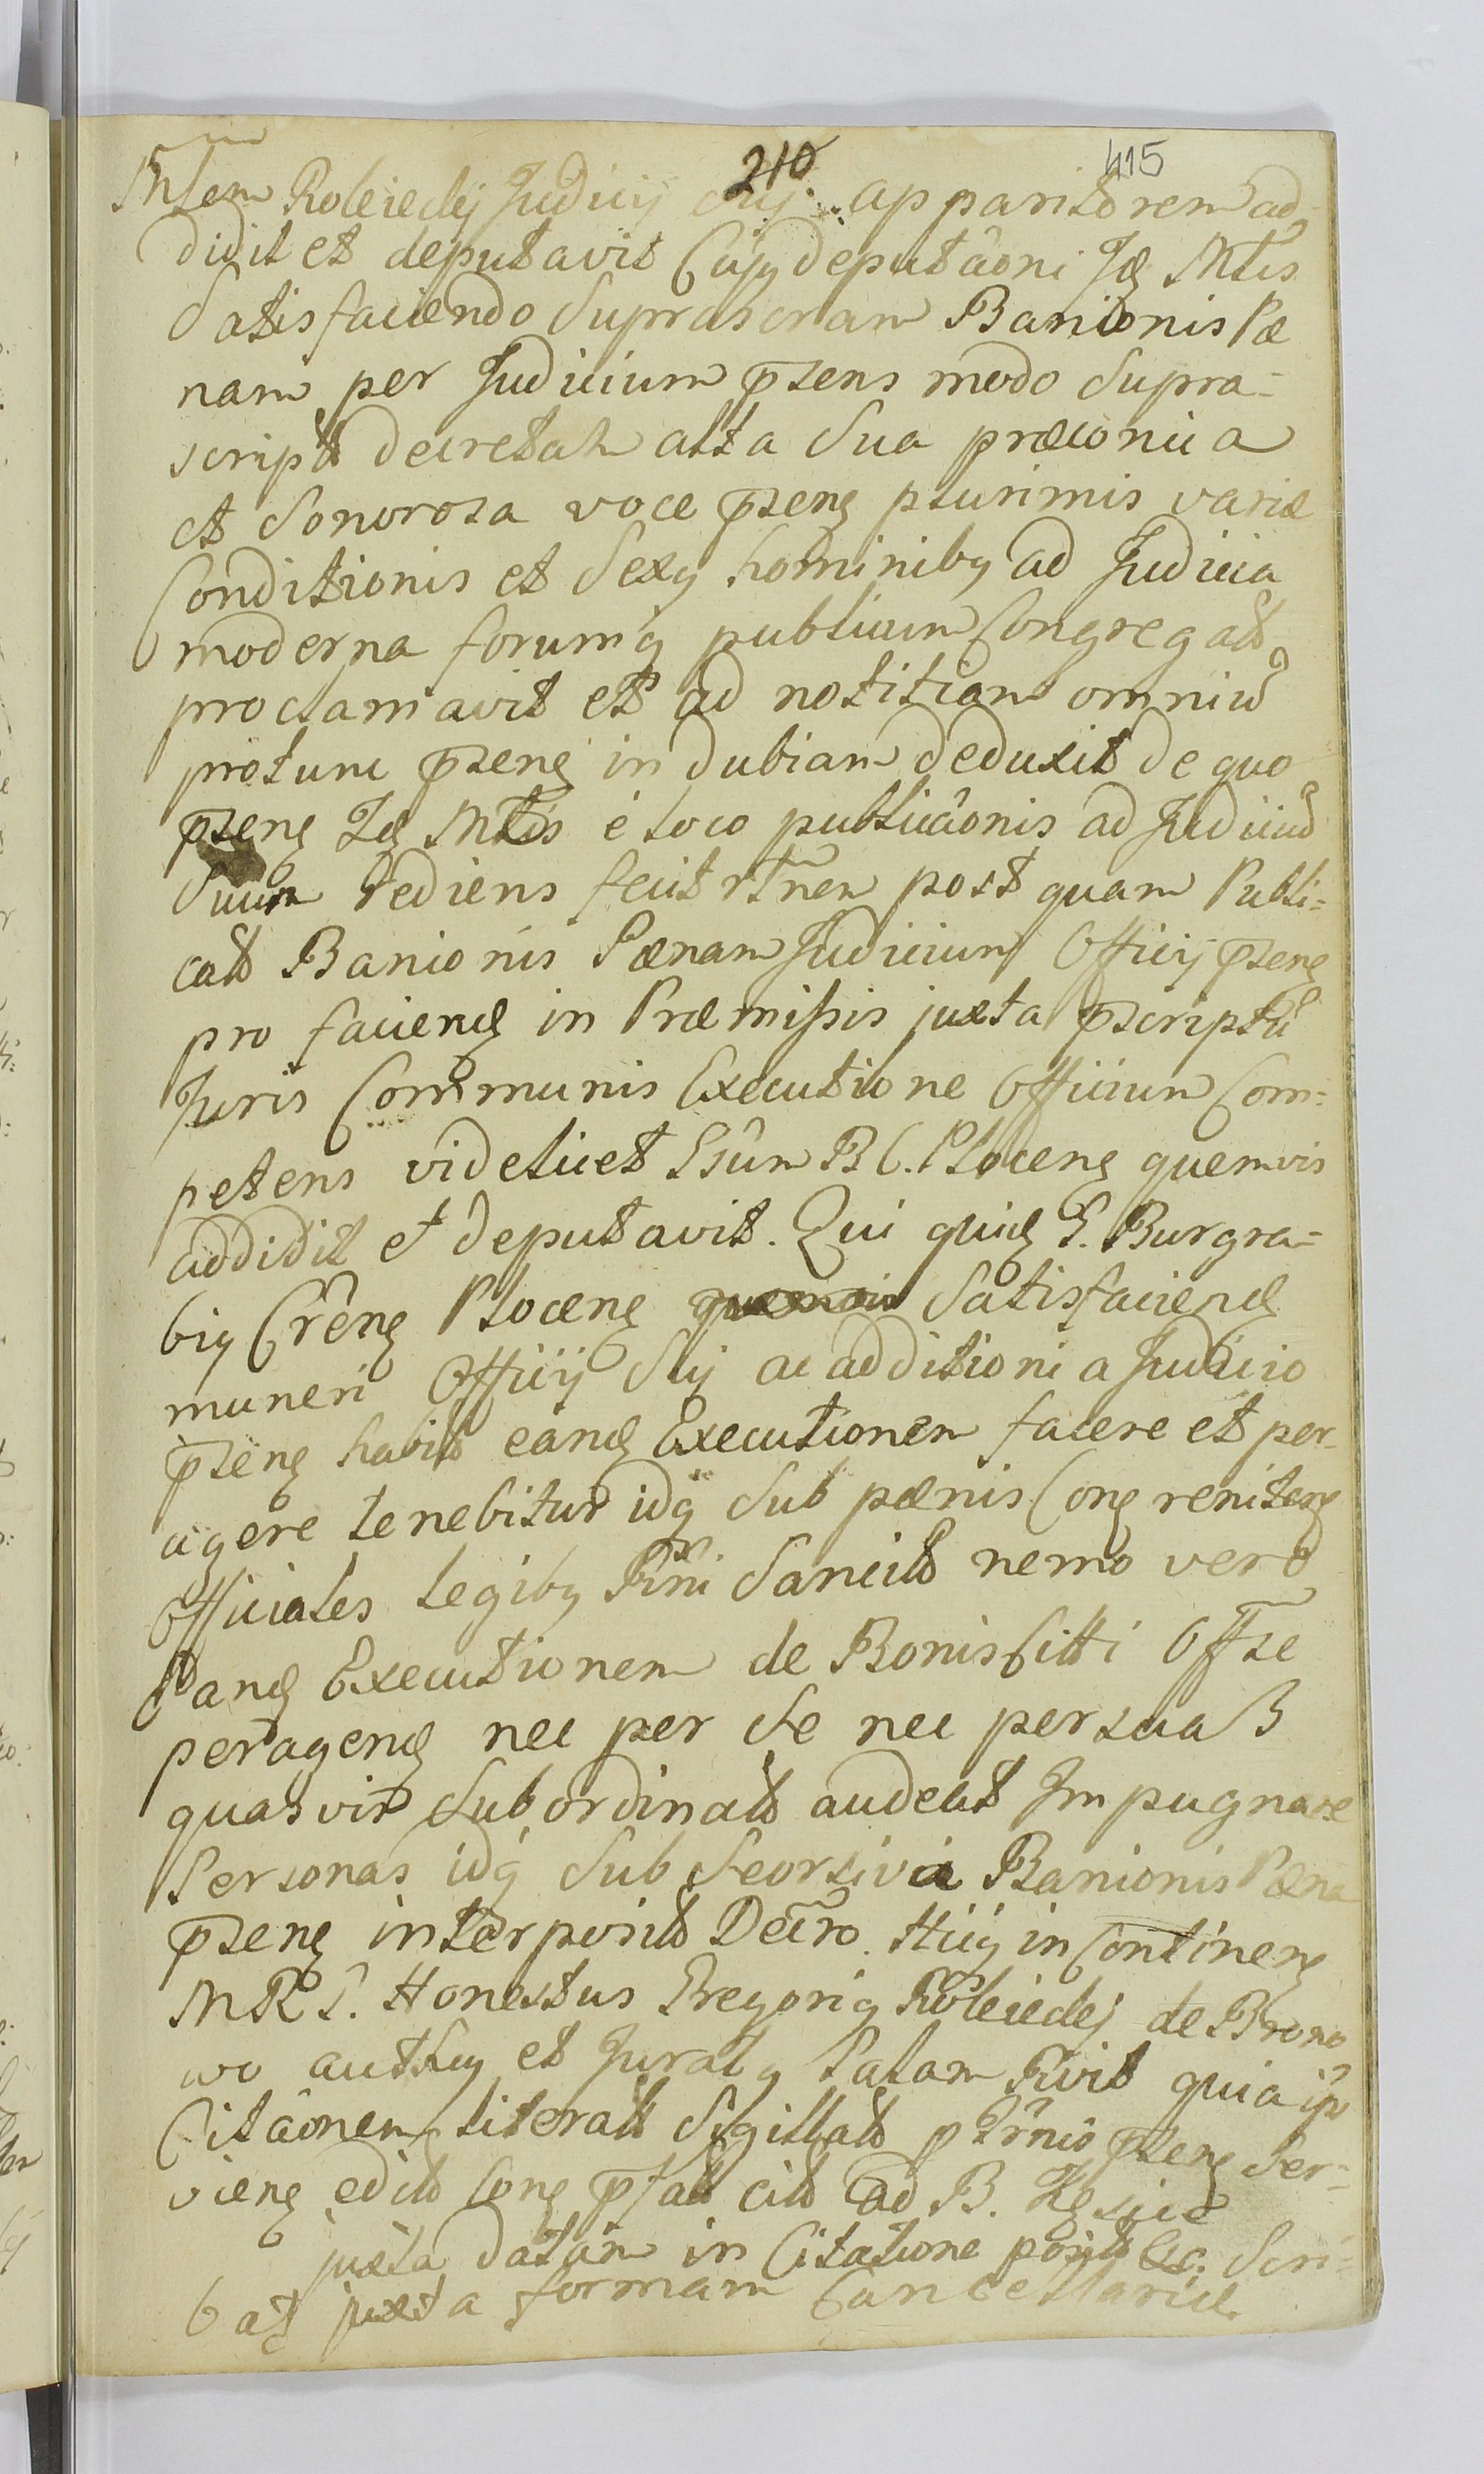 210. 415
Mlem Koleiedy Judicij Suj apparitorem ad
didit et deputavit Cujg deputâoni Ig Mtis
Satisfaciendo Suprascram Banionis Pæ
nam per Judicium p̄sens modo Supra-
script decretah alta Sua præconica
et Sonorosa voce p̄seng plurimis variæ
Conditionis et Sexg hominibg ad Judicia
moderna forumq publicum Congregatt
proclamavit et ad notitiam omniū
protunc p̄seng indubiam deduxit de quo
p̄seng Ig Mtis è loco publicâonis ad Judiciū
Suum rediens fecit rt̃nem post quam Publi=
catt Banionis Pænam Judicium Officij p̄seng
pro faciend in Præmissis juxta p̄scriptū
Juris Communis Executione Officium Com=
petens videlicet Gsûm B C. Ploceng quemvis
addidit et deputavit. Qui quid G. Burgra=
big Crêng Ploceng Satisfaciend
muneri Officij Suj ac additioni a Judicio
p̄seng habitt eand Executionem facere et per=
agere tenebitur idq Sub pænis Cong reniteng
Officiales legibg Rñi Sancitt nemo vero
Eand Executionem de Bonis Citti Offse
peragend nec per Se nec per suas
quasvis Subordinatt audeat Impugnare
Personas idq Sub Seorsiva Banionis Pæna
p̄seng interposito Decro. Hicg in Contineng
MRS. Honestus Gregorig Koleiedy de Brono
wo authcg et Juratg Palam Rvit quia ip
Citâonem literatt Sigillatt p Trñio p̄seng Ser=
vieng editt cong p̄fatt citt ad B.
juxta datam in Citatione posit &c. Scri=
bat juxta formam Cancellariæ.